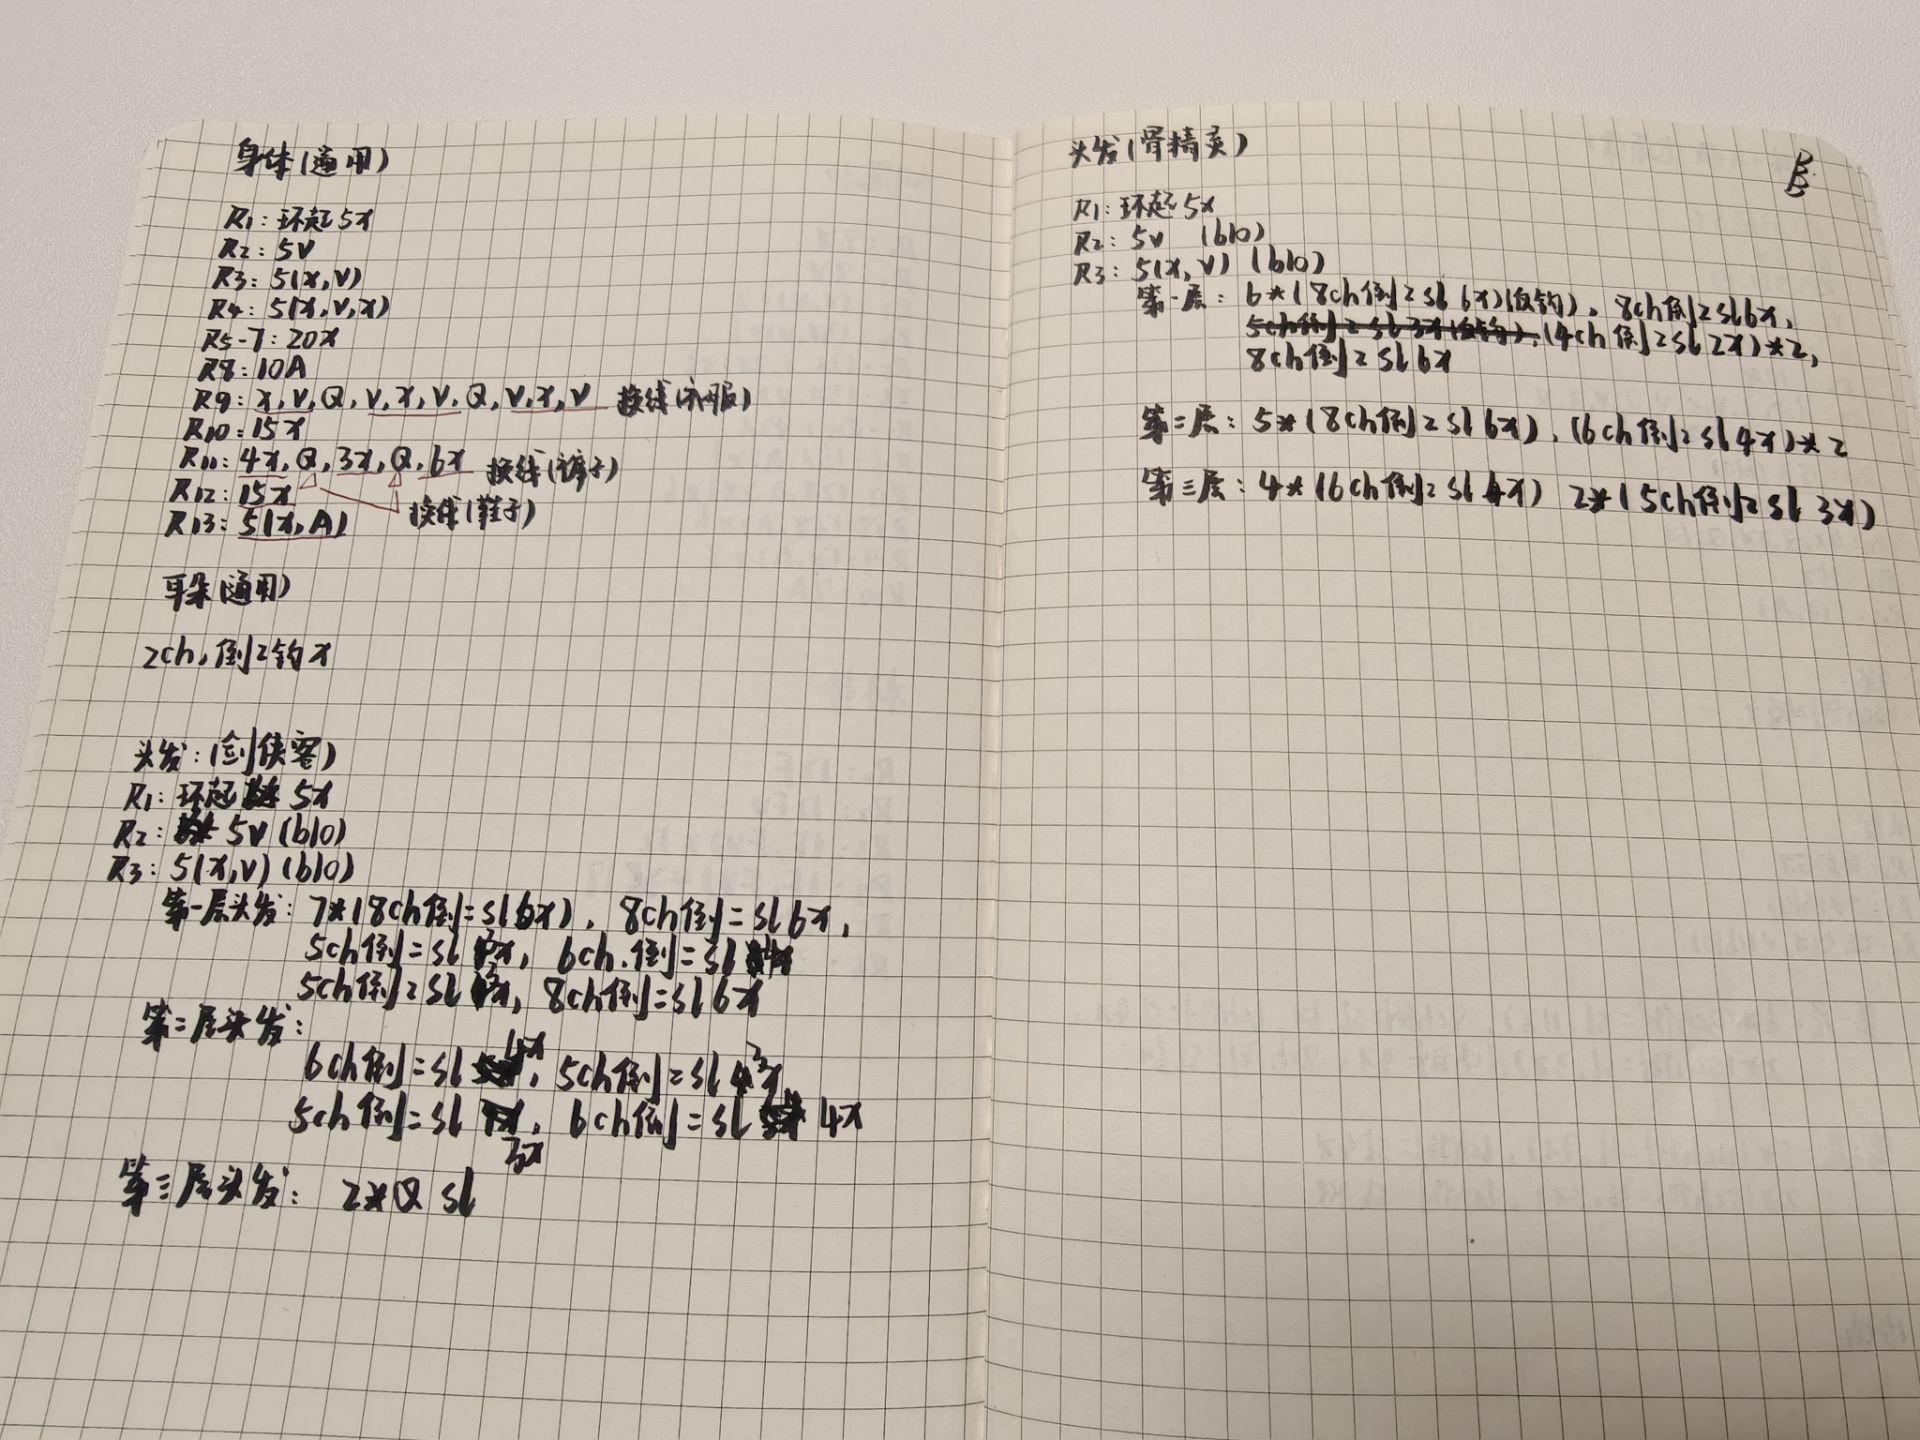 身体(通用)
R1: 环起5x
R2: 5V
R3: 5(x,V)
R4: 5(x,V,x)
R5-7: 20x
R8: 10A
R9: x,V,Q,V,x,V,Q,V,x,V 换线(衣服)
R10: 15x
R11: 4x,Q,3x,Q,6x 换线(裤子)
R12: 15x
换线(鞋子)
R13: 5(x,A)
耳朵(通用)
2ch,倒2钩x
头发:(剑侠客)
R1: 环起 5x
R2: 5V (blo)
R3: 5(x,V) (blo)
第一层头发: 7*(8ch倒二sl6x), 8ch倒二sl6x,
5ch倒二sl x, 6ch.倒二sl
5ch倒2sl x, 8ch倒二sl6x
第二层头发:
6ch倒二sl 4x, 5ch倒2sl 3x
5ch倒二sl 3x, 6ch倒二sl 4x
第三层头发: 2*Q sl
头发(骨精灵)
B
B
R1: 环起5x
R2: 5V (blo)
R3: 5(x,V) (blo)
第一层: 6*(8ch倒2sl 6x)(反钩), 8ch倒2sl6x,
5ch倒2sl 3x(反钩),(4ch倒2sl 2x)*2,
8ch倒2sl6x
第二层: 5*(8ch倒2sl 6x), (6ch倒2sl4x)*2
第三层: 4*(6ch倒2sl 4x) 2*(5ch倒2sl 3x)